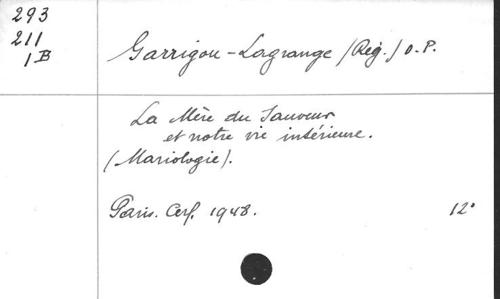 293
211
1B
Garrigou-Lagrange /Rég./ O.P.
La Mère du Sauveur
et notre vie intérieure.
(Mariologie).
Paris. Cerf. 1948. 12°